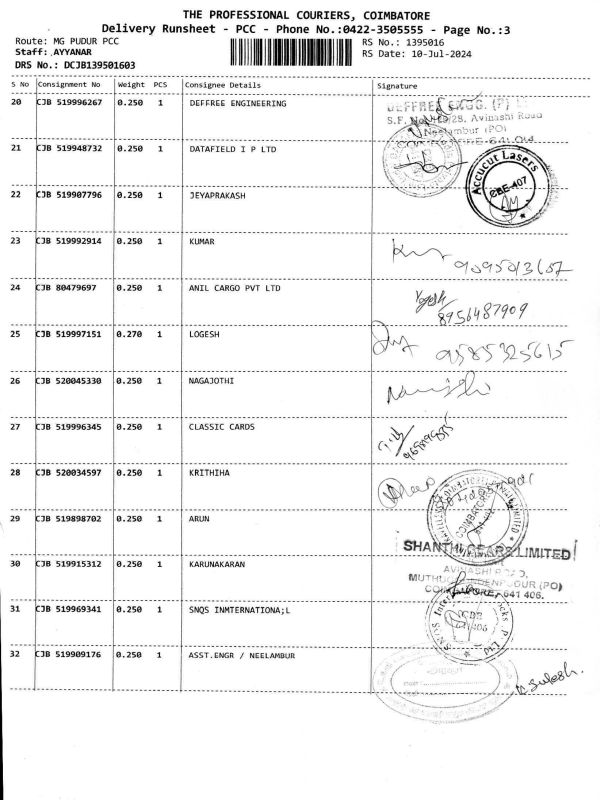 THE PROFESSIONAL COURIERS, COIMBATORE
Delivery Runsheet - PCC - Phone No.:0422-3505555 - Page No.:3
Route: MG PUDUR PCC
RS No.: 1395016
Staff: AYYANAR
RS Date: 10-Jul-2024
DRS No.: DCJB139501603
S No Consignment No Weight PCS Consignee Details Signature
20 CJB 519996267 0.250 1 DEFFREE ENGINEERING
DEFFREE ENGG. (P)
S.F. No. /28, Avinashi Road
Neelambur (PO)
21 CJB 519948732 0.250 1 DATAFIELD I P LTD
Accucut Lasers
CBE-407
22 CJB 519907796 0.250 1 JEYAPRAKASH
23 CJB 519992914 0.250 1 KUMAR
24 CJB 80479697 0.250 1 ANIL CARGO PVT LTD
Yogesh
8956487909
25 CJB 519997151 0.270 1 LOGESH
9585325615
26 CJB 520045330 0.250 1 NAGAJOTHI
27 CJB 519996345 0.250 1 CLASSIC CARDS
28 CJB 520034597 0.250 1 KRITHIHA
29 CJB 519898702 0.250 1 ARUN
COIMBATORE
SHANTHI GEARS LIMITED
30 CJB 519915312 0.250 1 KARUNAKARAN
AVINASHI ROAD,
641 406.
31 CJB 519969341 0.250 1 SNQS INMTERNATIONA;L
SNQS
CBE
641 406
32 CJB 519909176 0.250 1 ASST.ENGR / NEELAMBUR